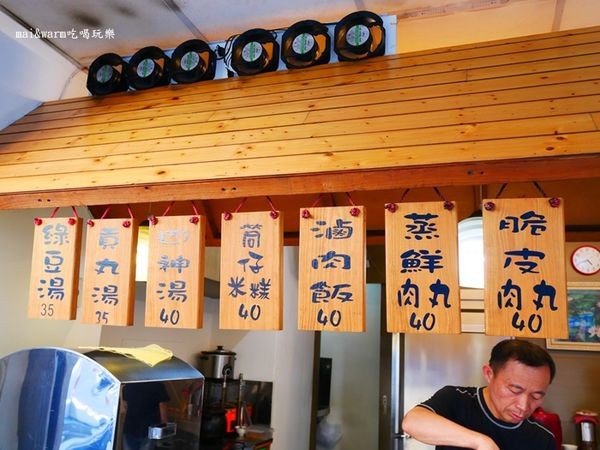 mai&warm吃喝玩樂
綠豆湯
35
貢丸湯
35
四神湯
40
筒仔
米糕
40
滷肉飯
40
蒸鮮
肉丸
40
脆皮
肉丸
40